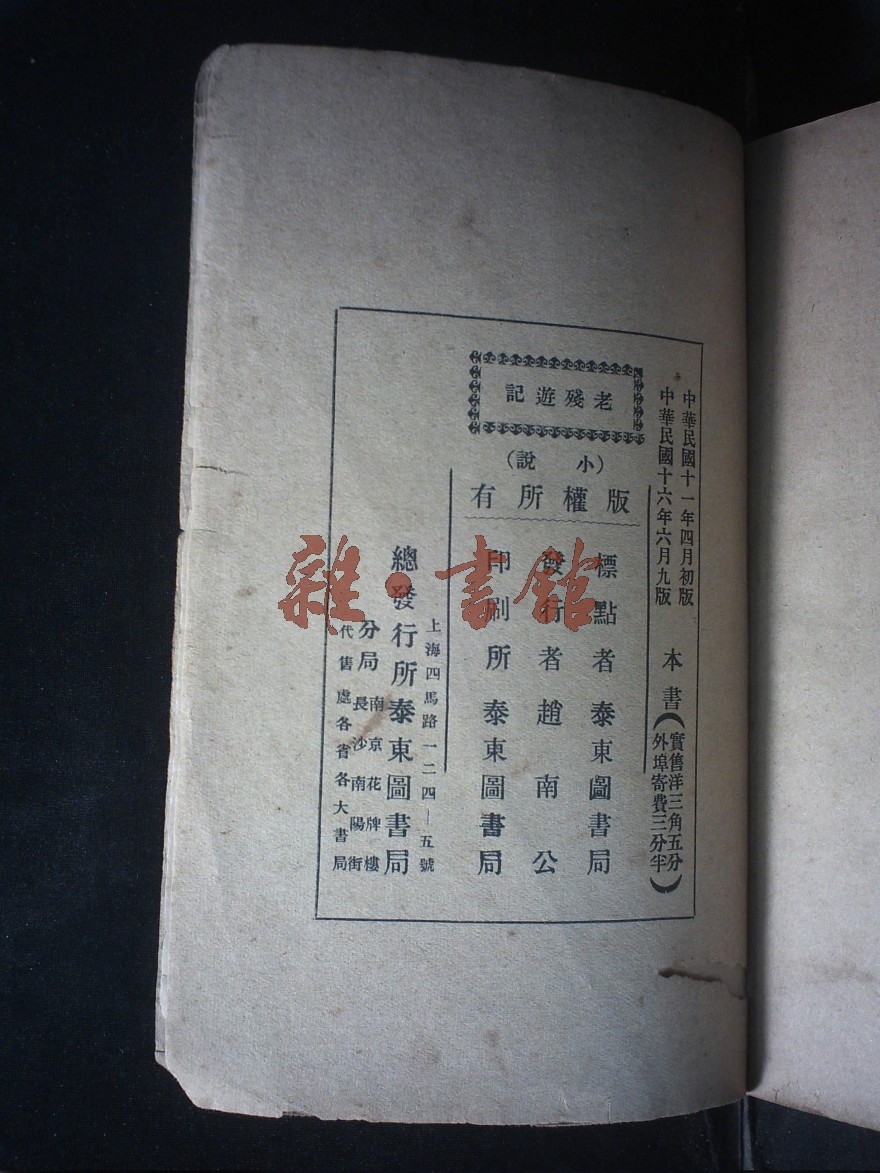 中華民國十一年四月初版
中華民國十六年六月九版
本書（實售洋三角五分
外埠寄費三分半）
老殘遊記
（小說）
版權所有
標點者泰東圖書局
發行者趙南公
印刷所泰東圖書局
上海四馬路一二四—五號
總發行所泰東圖書局
分局南京花牌樓
長沙南陽街
代售處各省各大書局
雜·書館